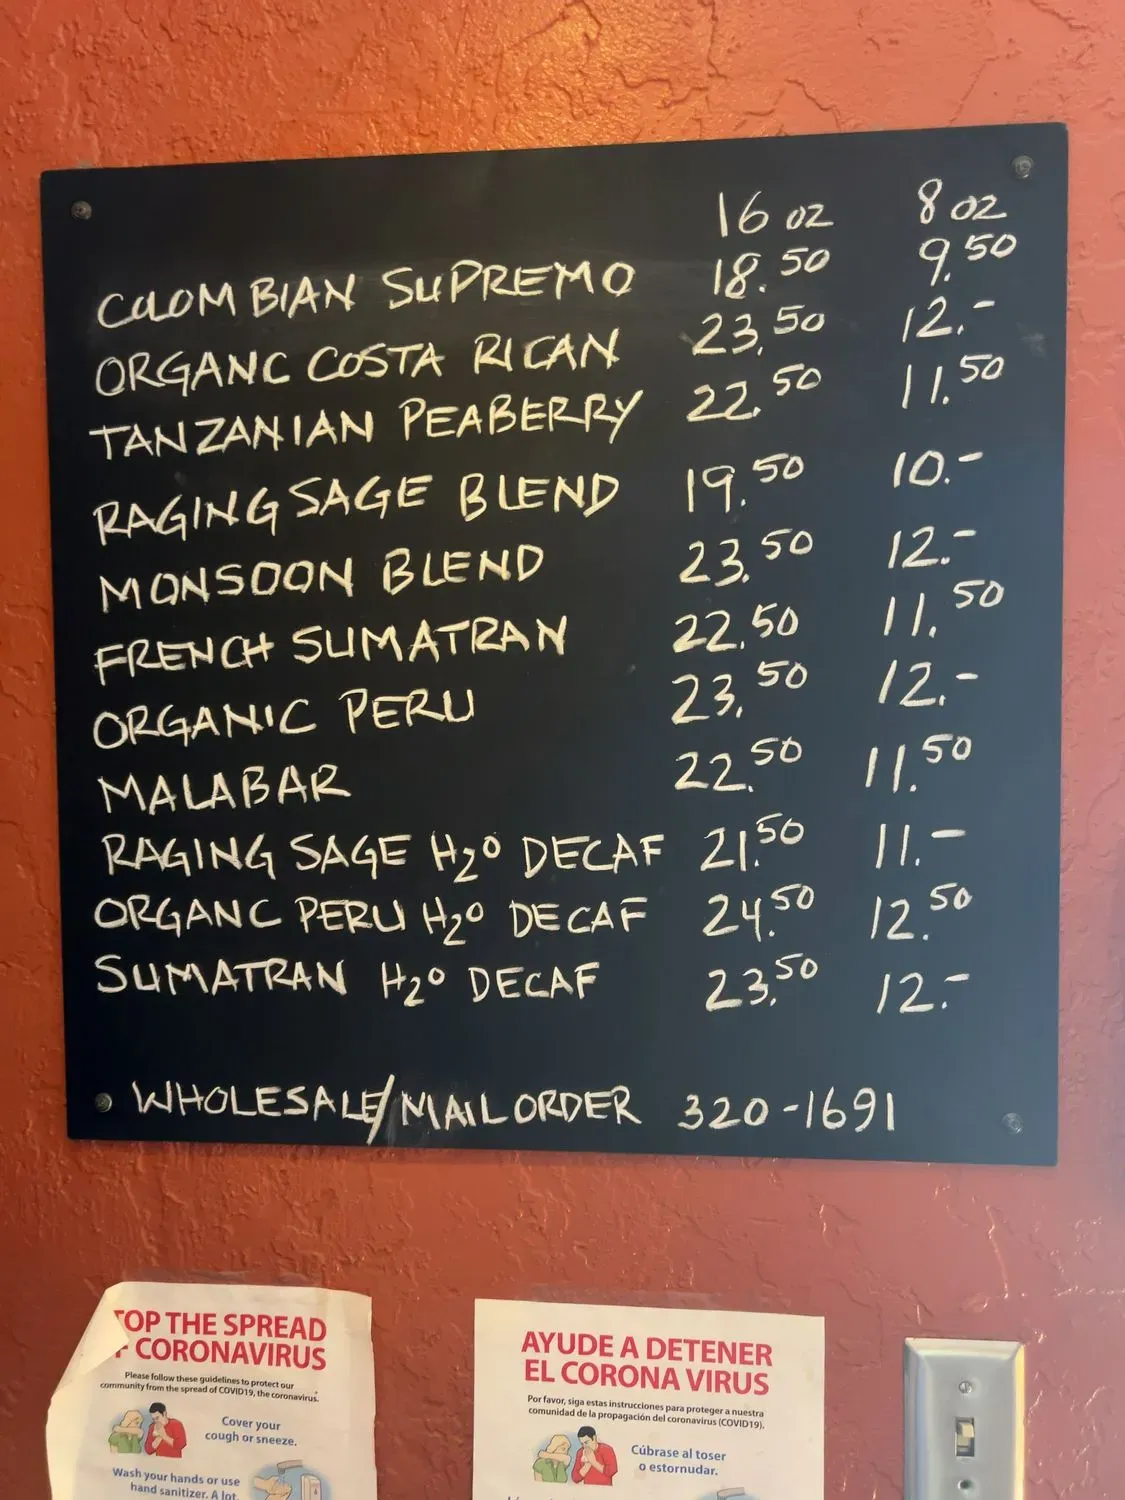 16 oz 8 oz
COLOMBIAN SUPREMO 18.50 9.50
ORGANC COSTA RICAN 23.50 12.-
TANZANIAN PEABERRY 22.50 11.50
RAGING SAGE BLEND 19.50 10.-
MONSOON BLEND 23.50 12.-
FRENCH SUMATRAN 22.50 11.50
ORGANIC PERU 23.50 12.-
MALABAR 22.50 11.50
RAGING SAGE H2O DECAF 21.50 11.-
ORGANC PERU H2O DECAF 24.50 12.50
SUMATRAN H2O DECAF 23.50 12.-
WHOLESALE/MAIL ORDER 320-1691
TOP THE SPREAD
F CORONAVIRUS
Please follow these guidelines to protect our
community from the spread of COVID19, the coronavirus.
Cover your
cough or sneeze.
Wash your hands or use
hand sanitizer. A lot.
AYUDE A DETENER
EL CORONA VIRUS
Por favor, siga estas instrucciones para proteger a nuestra
comunidad de la propagación del coronavirus (COVID19).
Cúbrase al toser
o estornudar.